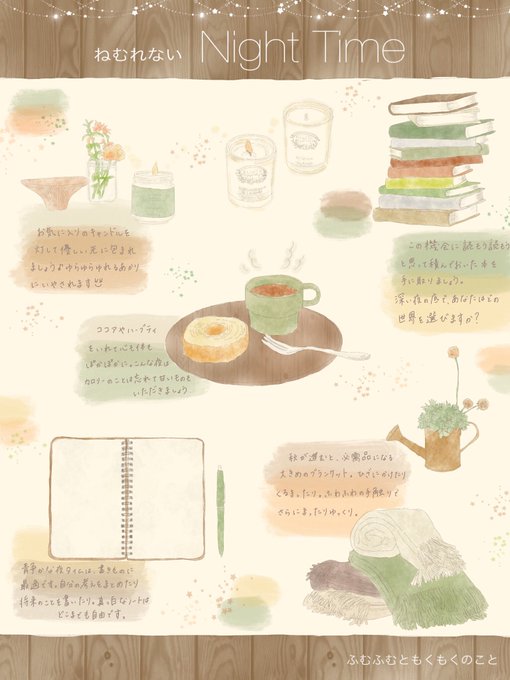 ねむれない Night Time
お気に入りのキャンドルを
灯して優しい光に包まれ
ましょう♪ゆらゆらゆれるあかり
にいやされます
この機会に読もう読もう
と思って積んでおいた本を
手に取りましょう。
深い夜の底で、あなたはどの
世界を選びますか?
ココアやハーブティ
をいれて心も体も
ぽかぽかに。こんな夜は
カロリーのことは忘れて甘いものも
いただきましょう
秋が進むと、必需品になる
大きめのブランケット。ひざにかけたり
くるまったり。ふわふわの手触りで
さらにまったりゆっくり。
静かな夜タイムは、書きものに
最適です。自分の考えをまとめたり
将来のことを書いたり。真っ白なノートは
どこまでも自由です。
ふむふむともくもくのこと